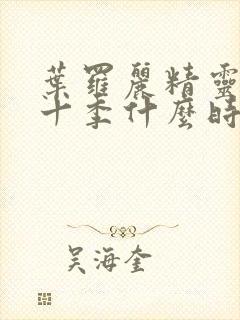 葉羅麗精靈
十季什麼時
吳海奎